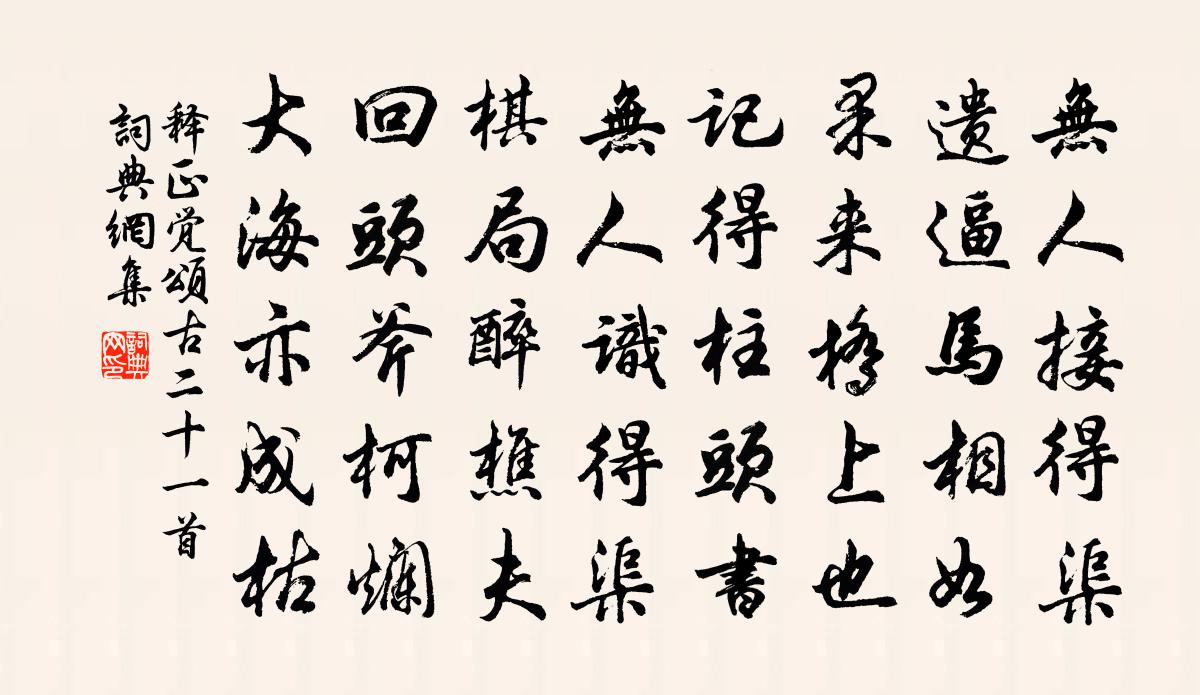 無人接得渠
遗逼馬相如
果来橋上也
記得柱頭書
無人識得渠
棋局醉樵夫
回頭斧柯爛
大海亦成枯
释正觉頌古二十一首
詞典網集
詞典网印